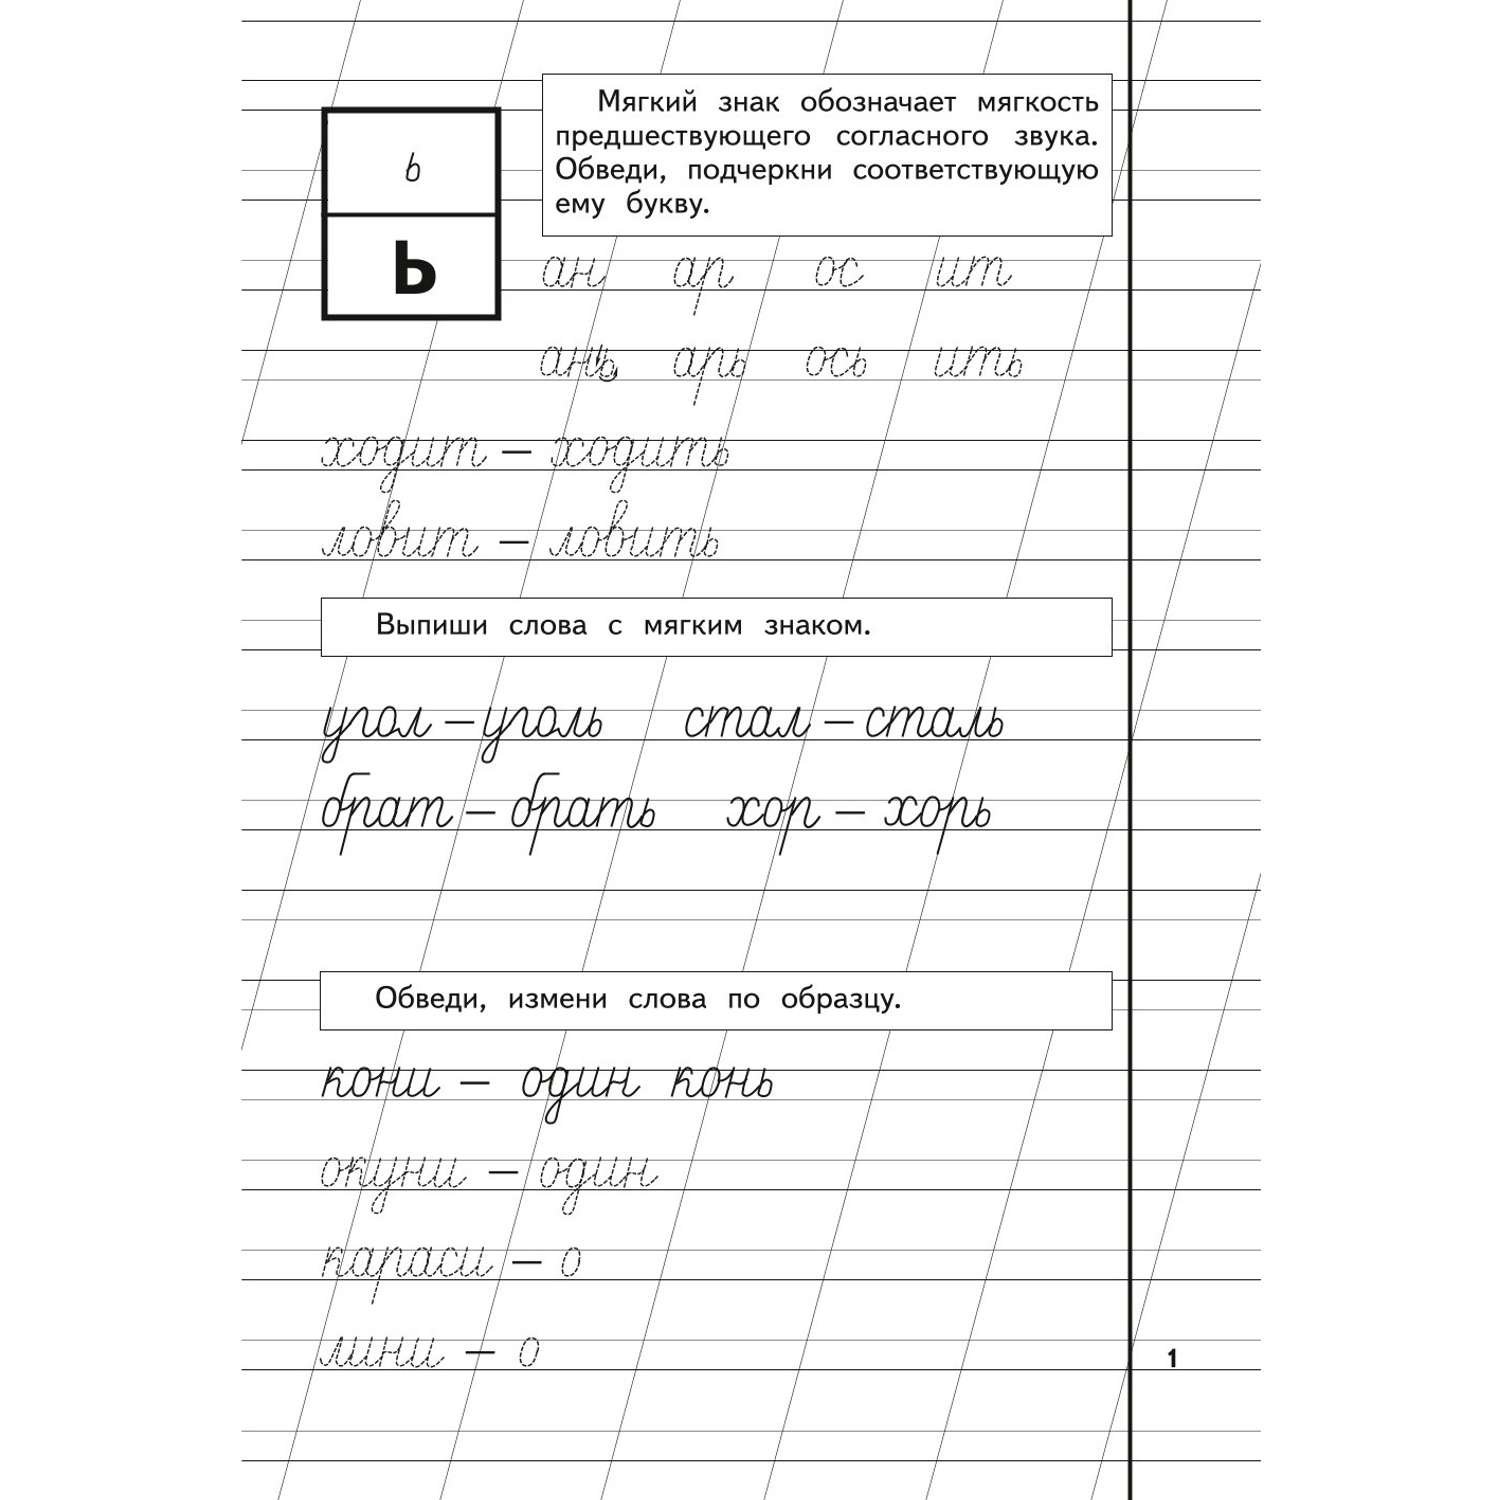 Мягкий знак обозначает мягкость
предшествующего согласного звука.
Обведи, подчеркни соответствующую
ему букву.
ь
ь
ан ар ос ит
ань арь ось ить
ходит – ходить
ловит – ловить
Выпиши слова с мягким знаком.
угол – уголь стал – сталь
брат – брать хор – хорь
Обведи, измени слова по образцу.
кони – один конь
окуни – один
караси – о
лини – о
1